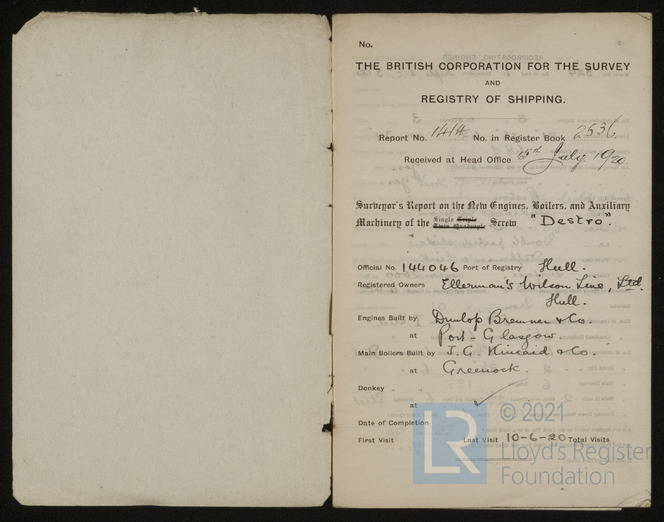 No.
THE BRITISH CORPORATION FOR THE SURVEY
AND
REGISTRY OF SHIPPING.
Report No. 1414 No. in Register Book 2536
Received at Head Office July 1920
Surveyor's Report on the New Engines, Boilers, and Auxiliary
Machinery of the Single Triple Twin Quadruple Screw "Destro".
Official No. 144046 Port of Registry Hull.
Registered Owners Ellerman's Wilson Line, Ltd
Hull.
Engines Built by Dunlop Bremner & Co.
at Port-Glasgow.
Main Boilers Built by J. G. Kincaid & Co.
at Greenock.
Donkey
at
Date of Completion
First Visit Last Visit 10-6-20 Total Visits
© 2021
LR Lloyd's Register
Foundation